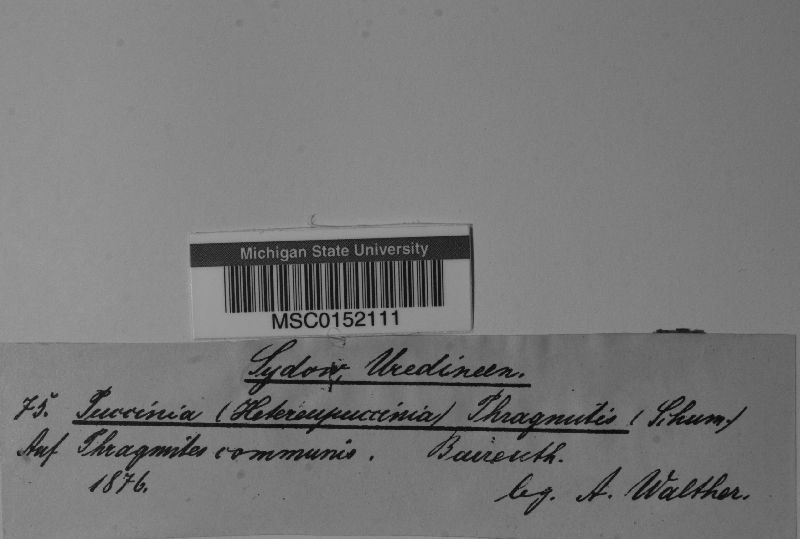 Michigan State University
MSC0152111
Sydow, Uredineen.
75. Puccinia (Heteropuccinia) Phragmitis (Schum.)
Auf Phragmites communis. Baireuth.
1876.
leg. A. Walther.